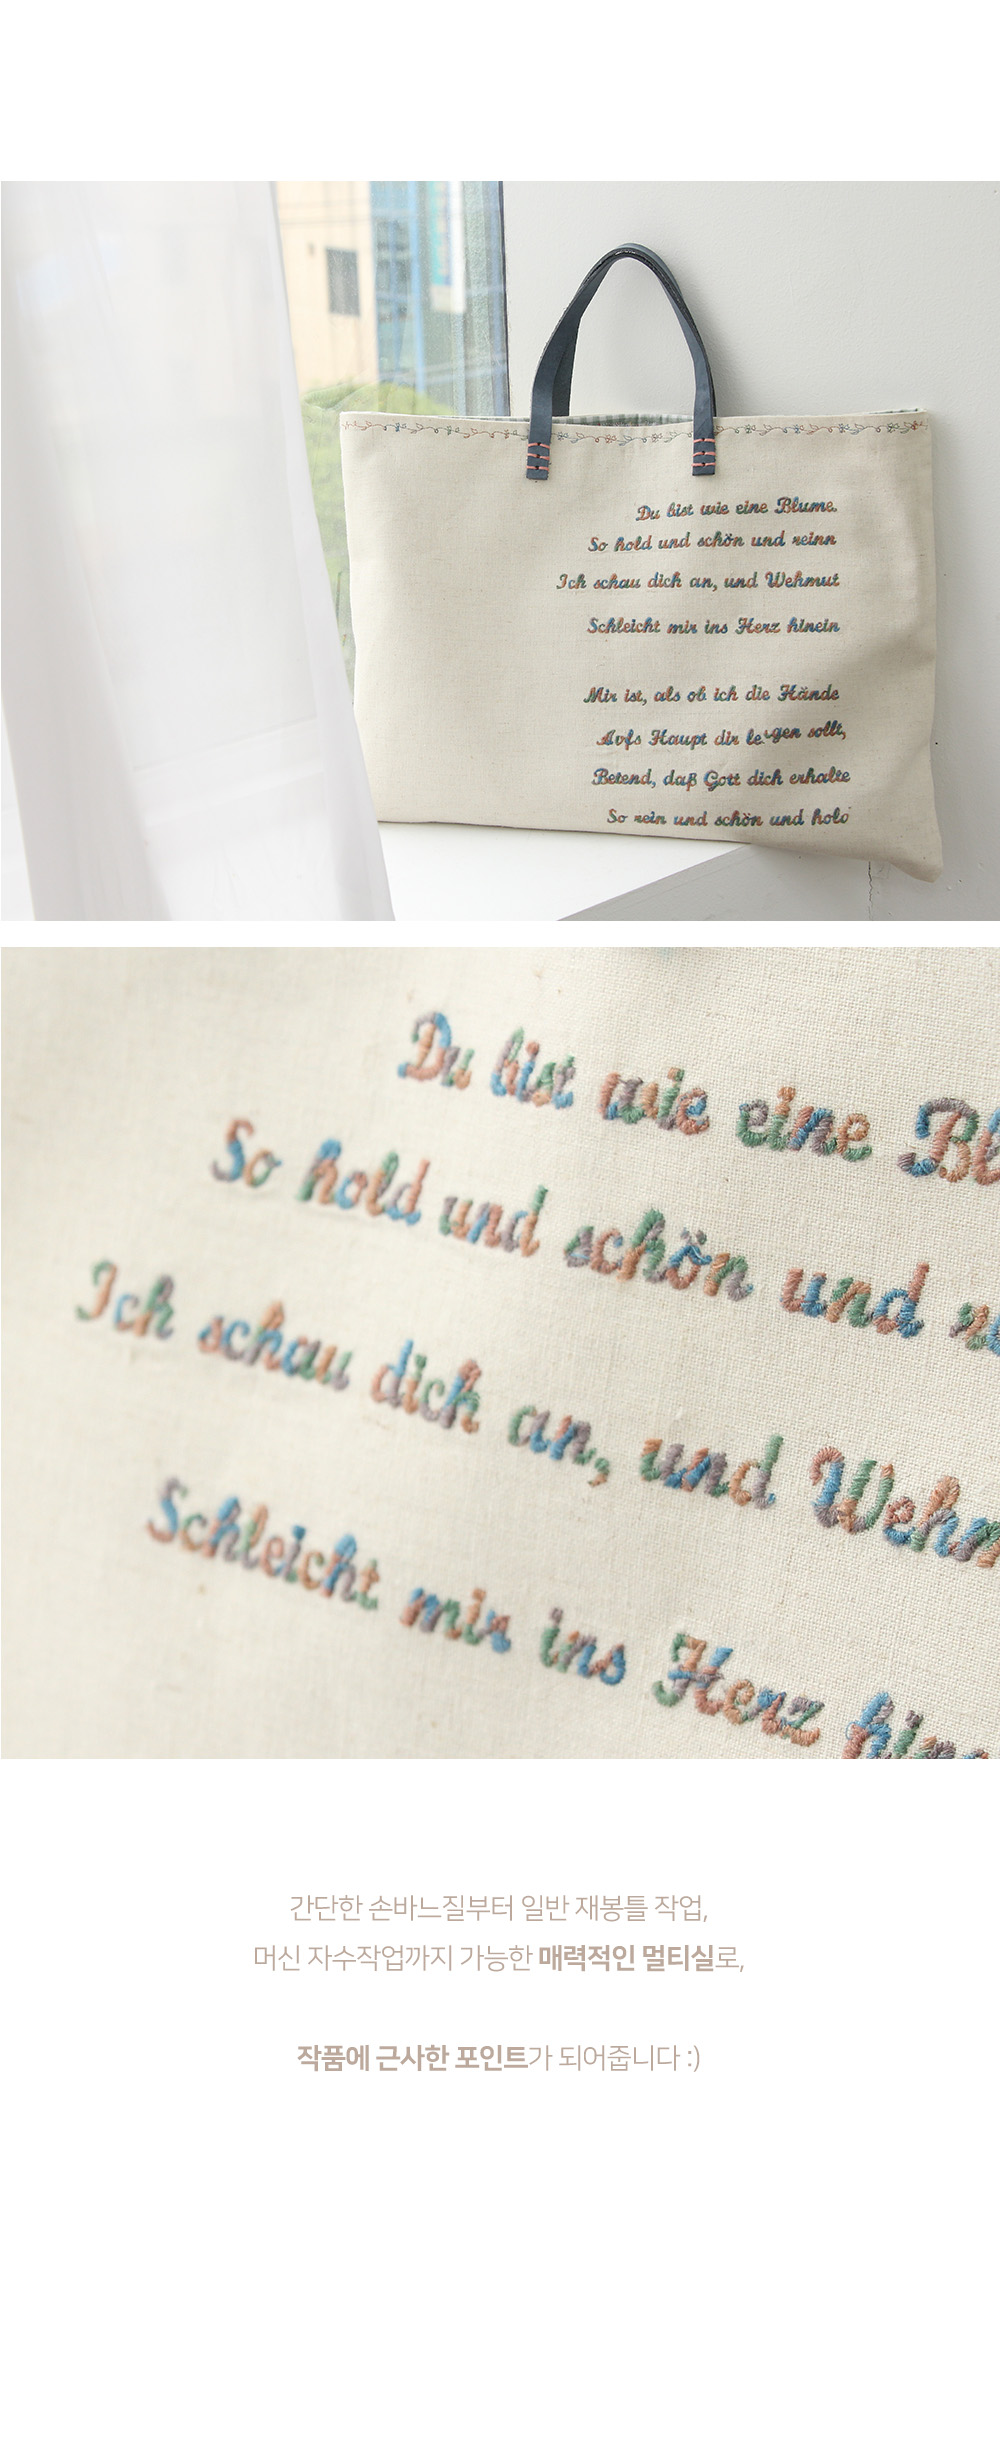 Du bist wie eine Blume.
So hold und schön und reinn
Ich schau dich an, und Wehmut
Schleicht mir ins Herz hinein
Mir ist, als ob ich die Hände
Avfs Haupt dir legen sollt,
Betend, daß Gott dich erhalte
So rein und schön und hold
Du bist wie eine Bl
So hold und schön und
Ich schau dich an, und Wehm
Schleicht mir ins Herz hine
간단한 손바느질부터 일반 재봉틀 작업,
머신 자수작업까지 가능한 매력적인 멀티실로,
작품에 근사한 포인트가 되어줍니다 :)